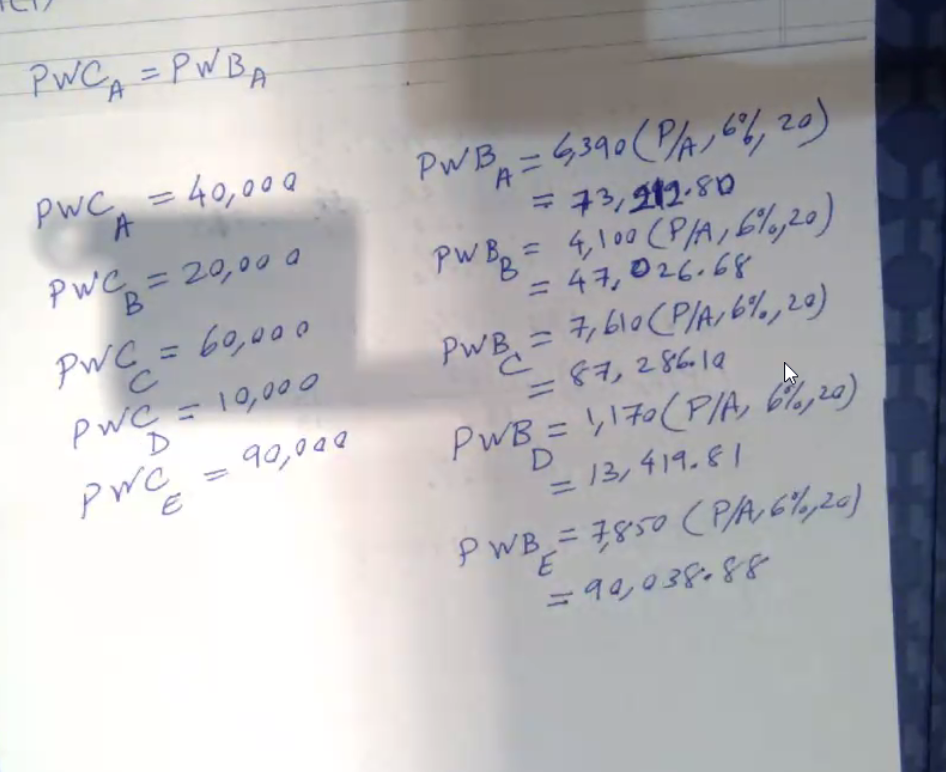 PWC_A = PWB_A
PWC_A = 40,000
PWC_B = 20,000
PWC_C = 60,000
PWC_D = 10,000
PWC_E = 90,000
PWB_A = 6,390 (P/A, 6%, 20)
= 73,292.80
PWB_B = 4,100 (P/A, 6%, 20)
= 47,026.68
PWB_C = 7,610 (P/A, 6%, 20)
= 87,286.10
PWB_D = 1,170 (P/A, 6%, 20)
= 13,419.81
PWB_E = 7,850 (P/A, 6%, 20)
= 90,038.88